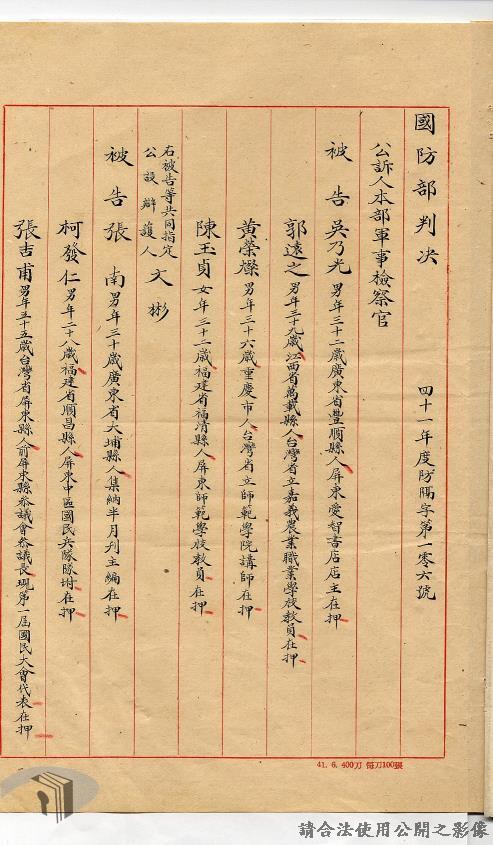 國防部判決
四十一年度防隔字第一零六號
公訴人本部軍事檢察官
被告吳乃光男年三十二歲廣東省豐順縣人屏東愛智書店店主在押
郭遠之男年三十九歲江西省萬載縣人台灣省立嘉義農業職業學校教員在押
黃榮燦男年三十六歲重慶市人台灣省立師範學院講師在押
陳玉貞女年三十二歲福建省福清縣人屏東師範學校教員在押
右被告等共同指定
公設辯護人文彬
被告張南男年三十歲廣東省大埔縣人集納半月刊主編在押
柯發仁男年二十八歲福建省順昌縣人屏東中區國民兵隊隊附在押
張吉甫男年五十五歲台灣省屏東縣人前屏東縣參議會參議長現第一屆國民大會代表在押
41. 6. 400刀 每刀100張
請合法使用公開之影像